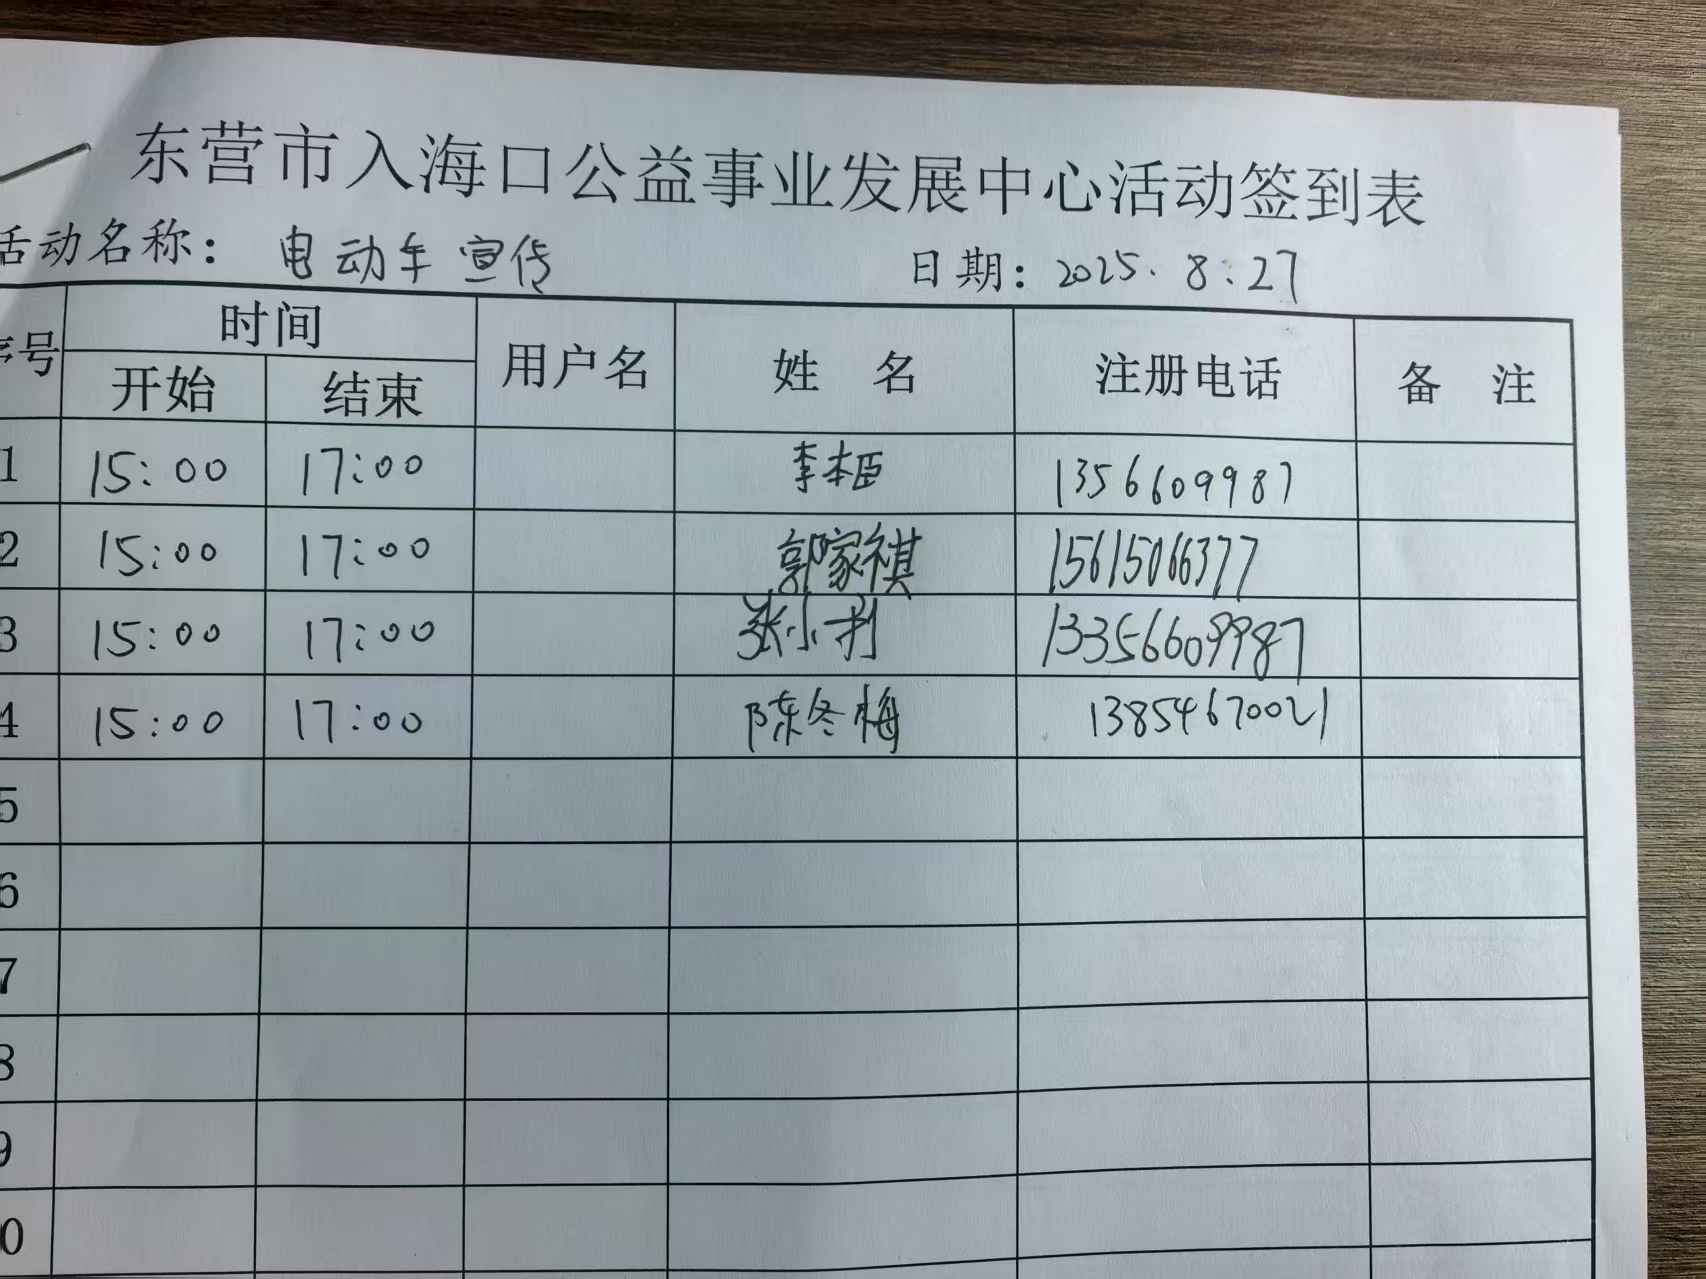 东营市入海口公益事业发展中心活动签到表
活动名称：电动车宣传 日期：2025.8:27
序号 时间 用户名 姓 名 注册电话 备 注
开始 结束
1 15:00 17:00 李本臣 1356609987
2 15:00 17:00 郭家祺 15615066377
3 15:00 17:00 张小利 13356609987
4 15:00 17:00 陈冬梅 13854670021
5
6
7
8
9
0